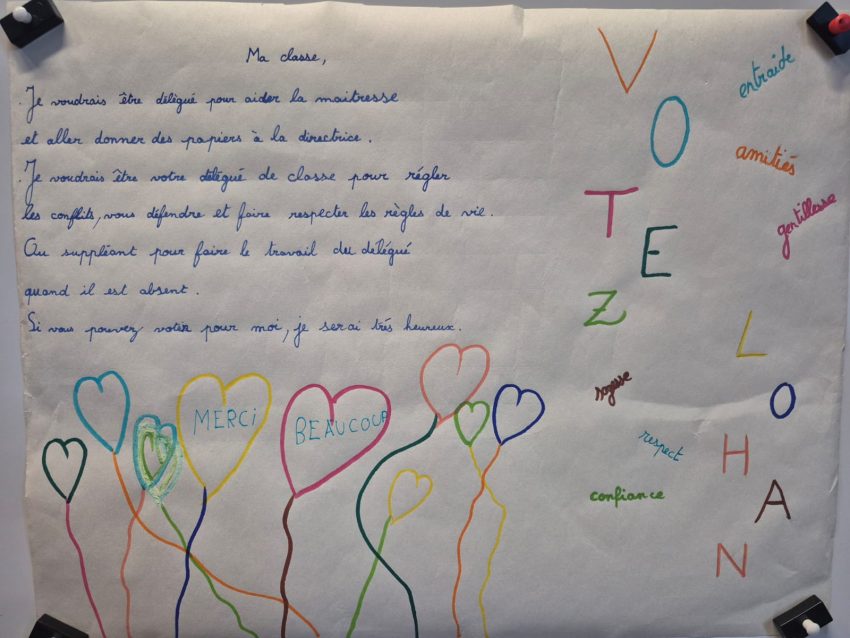 Ma classe,
. Je voudrais être délègué pour aider la maitresse
et aller donner des papiers à la directrice.
. Je voudrais être votre délégué de classe pour régler
les conflits, vous défendre et faire respecter les règles de vie.
Ou suppléant pour faire le travail du délégué
quand il est absent.
Si vous pouvez voter pour moi, je serai trés heureux.
MERCi
BEAUCOUP
VOTEZ
LOHAN
entraide
amitiés
gentillesse
sagesse
respect
confiance